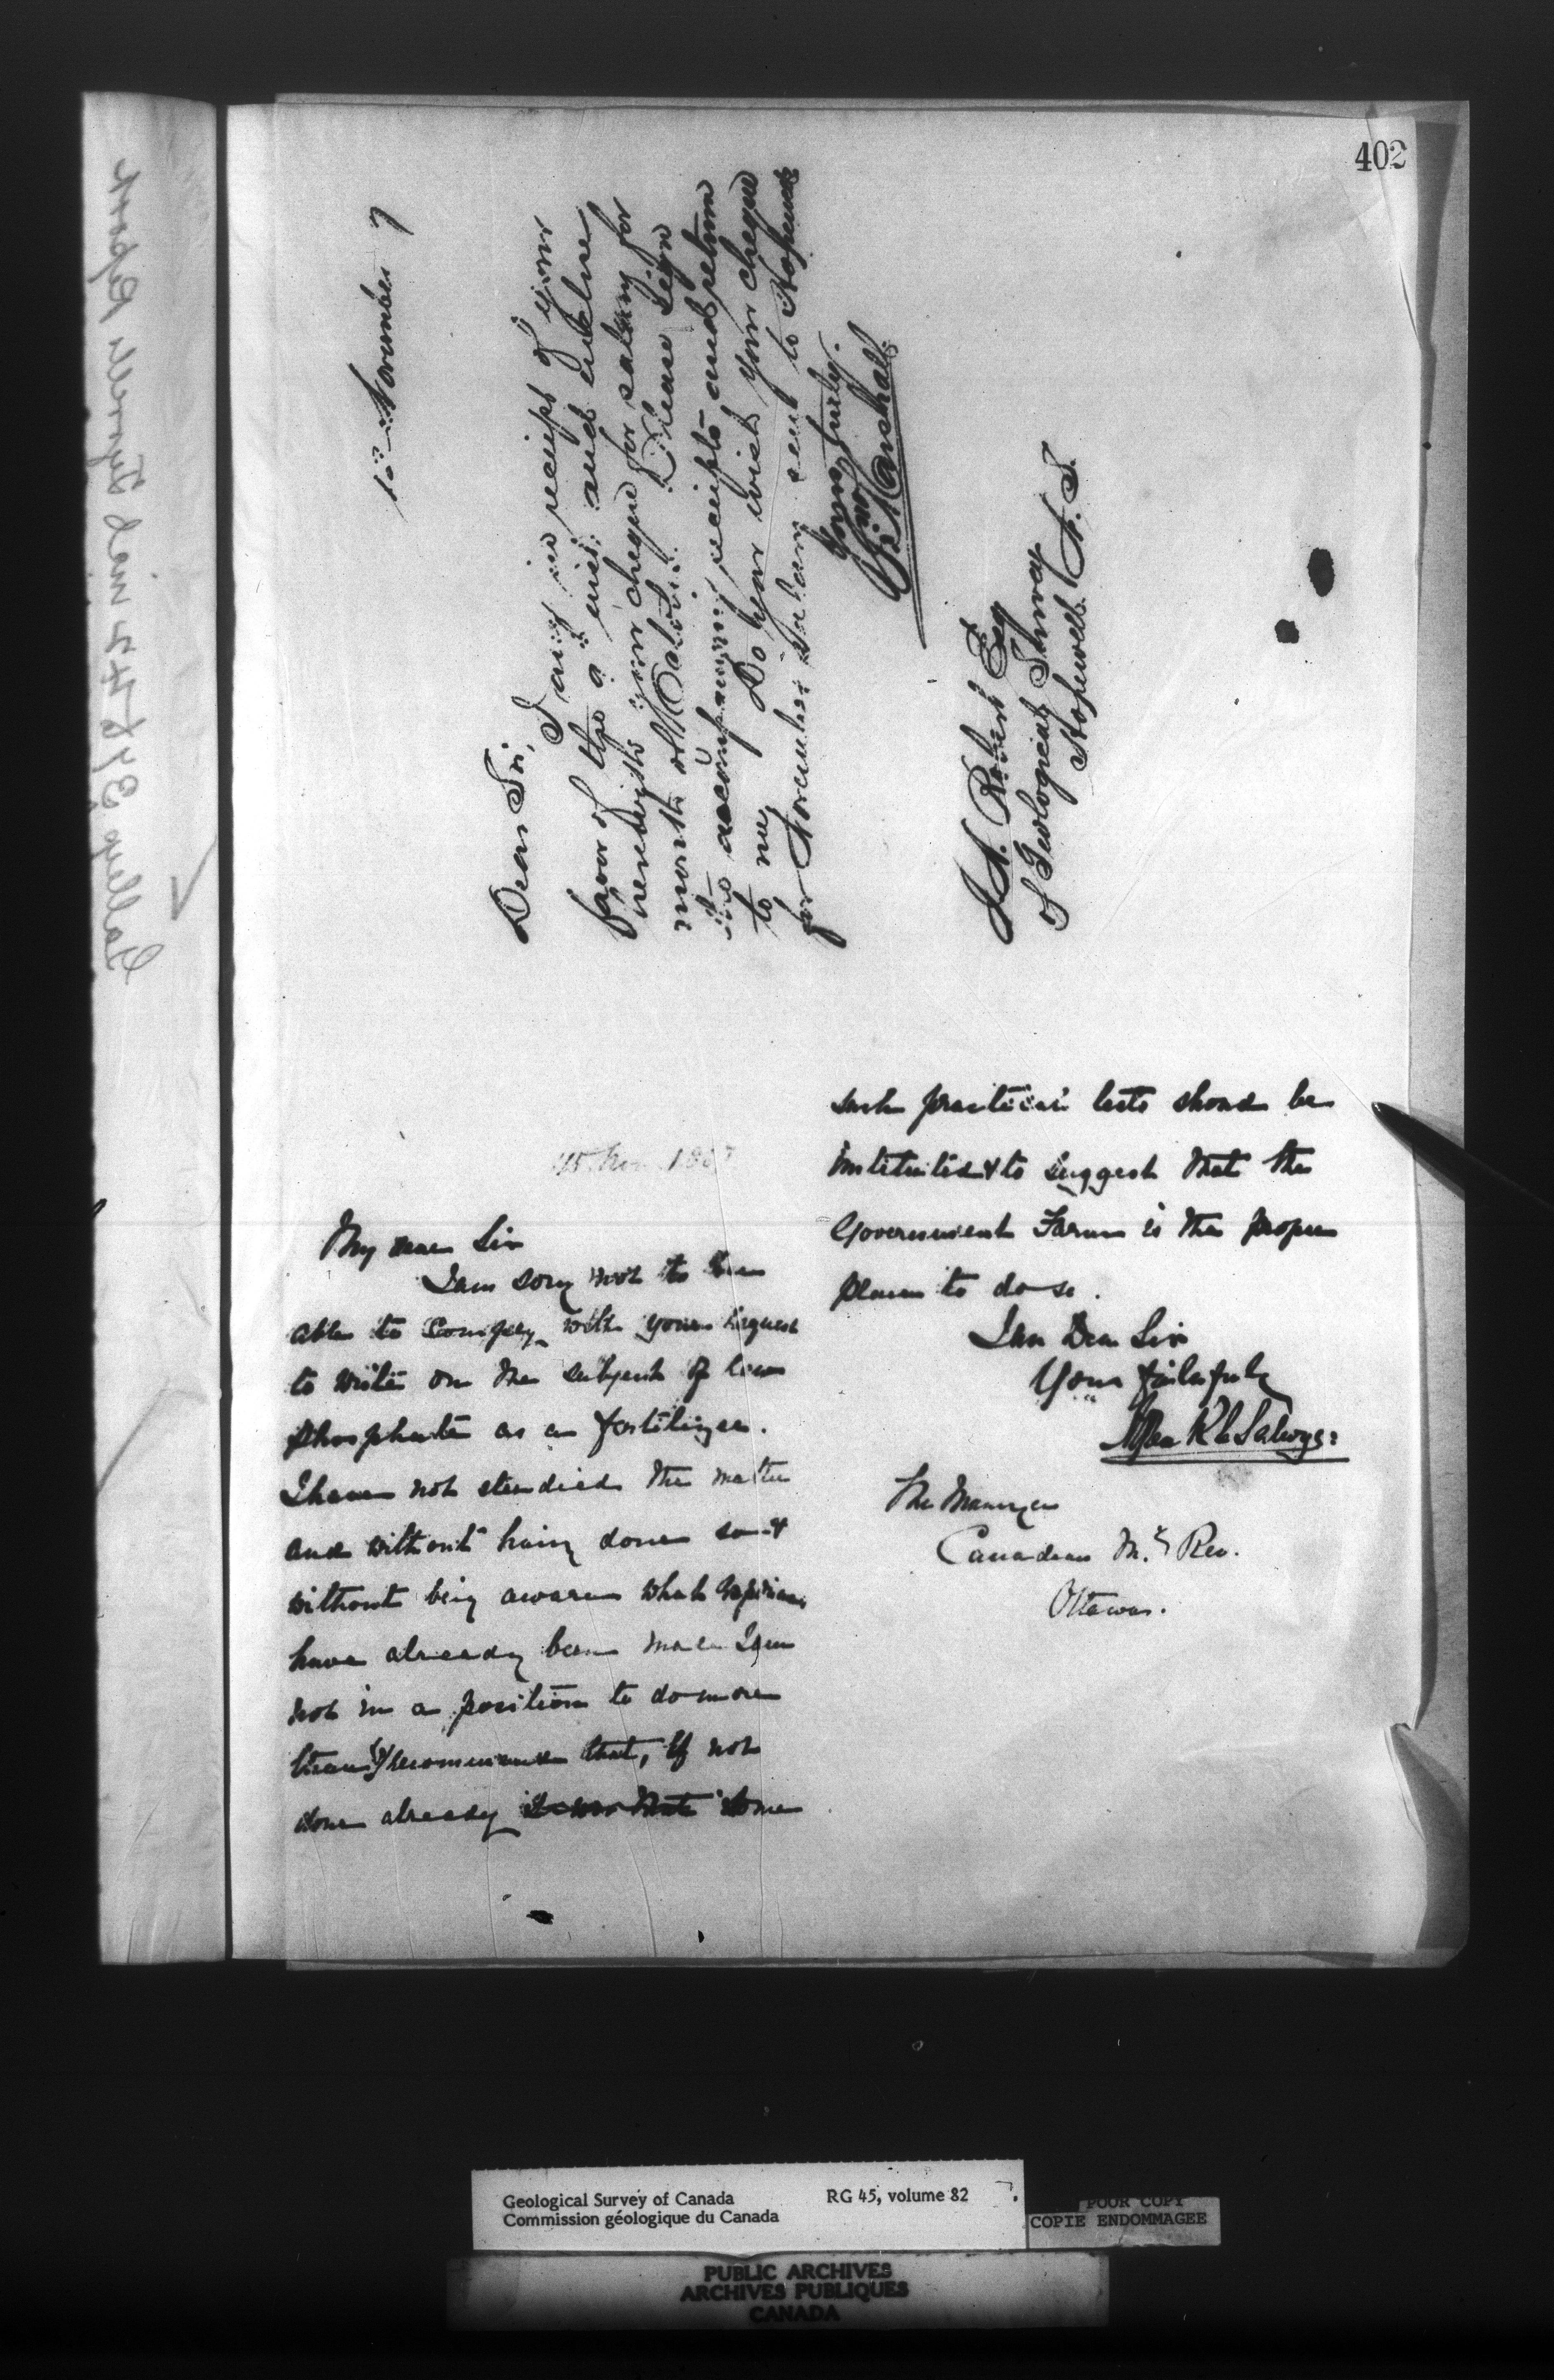 402
15 November 7
Dear Sir,
I am in receipt of your
favor of the 9th inst. and enclose
herewith your cheque for salary for
month of October. Please sign
the accompanying receipts and return
to me. Do you wish your cheque
for November salary sent to Hopewell
Yours truly.
Jno Marshall
Robert Esq
of Geological Survey
Hopewell N. S.
15 Nov. 1887
My dear Sir
I am sorry not to be
able to comply with your request
to write on the subject of
phosphate as a fertilizer.
I have not studied the matter
and without having done so &
without being aware what
have already been made I am
not in a position to do more
than recommend that, if not
done already some
such practical tests should be
instituted & to suggest that the
Government Farm is the proper
place to do so.
I am Dear Sir
Yours faithfully
Alfred R C Selwyn
The Manager
Canadian M. Rev.
Ottawa.
Galleys 37 & 42 incl Tyrrells Report
Geological Survey of Canada
Commission géologique du Canada
RG 45, volume 82
POOR COPY
COPIE ENDOMMAGEE
PUBLIC ARCHIVES
ARCHIVES PUBLIQUES
CANADA